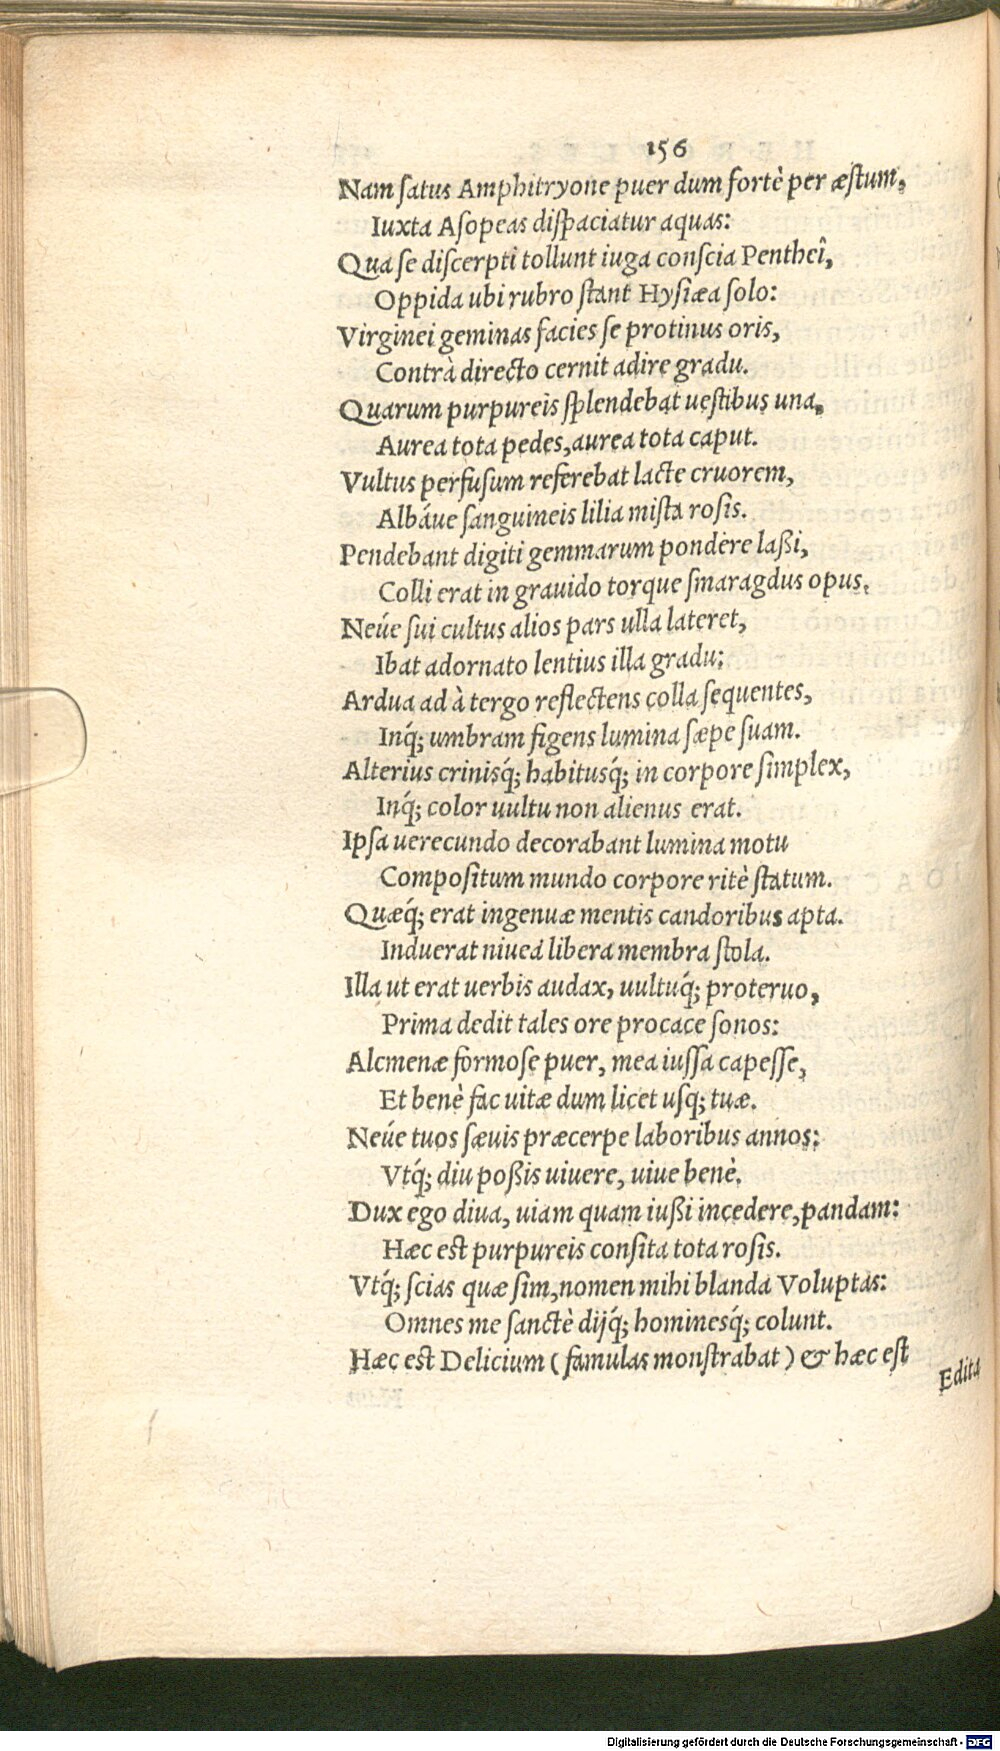 156
Nam satus Amphitryone puer dum fortè per æstum,
Iuxta Asopeas dispaciatur aquas:
Qua se discerpti tollunt iuga conscia Pentheî,
Oppida ubi rubro stant Hysiæa solo:
Virginei geminas facies se protinus oris,
Contrà directo cernit adire gradu.
Quarum purpureis splendebat uestibus una,
Aurea tota pedes, aurea tota caput.
Vultus perfusum referebat lacte cruorem,
Albáue sanguineis lilia mista rosis.
Pendebant digiti gemmarum pondere laßi,
Colli erat in grauido torque smaragdus opus.
Neúe sui cultus alios pars ulla lateret,
Ibat adornato lentius illa gradu:
Ardua ad à tergo reflectens colla sequentes,
Inq́; umbram figens lumina sæpe suam.
Alterius crinisq́; habitusq́; in corpore simplex,
Inq́; color uultu non alienus erat.
Ipsa uerecundo decorabant lumina motu
Compositum mundo corpore ritè statum.
Quæq́; erat ingenuæ mentis candoribus apta.
Induerat niuea libera membra stola.
Illa ut erat uerbis audax, uultuq́; proteruo,
Prima dedit tales ore procace sonos:
Alcmenæ formose puer, mea iussa capesse,
Et benè fac uitæ dum licet usq; tuæ.
Neúe tuos sæuis præcerpe laboribus annos:
Vtq́; diu poßis uiuere, uiue benè.
Dux ego diua, uiam quam iußi incedere, pandam:
Hæc est purpureis consita tota rosis.
Vtq́; scias quæ sim, nomen mihi blanda Voluptas:
Omnes me sanctè dijq́; hominesq́; colunt.
Hæc est Delicium (famulas monstrabat) & hæc est
Edita
Digitalisierung gefördert durch die Deutsche Forschungsgemeinschaft - DFG